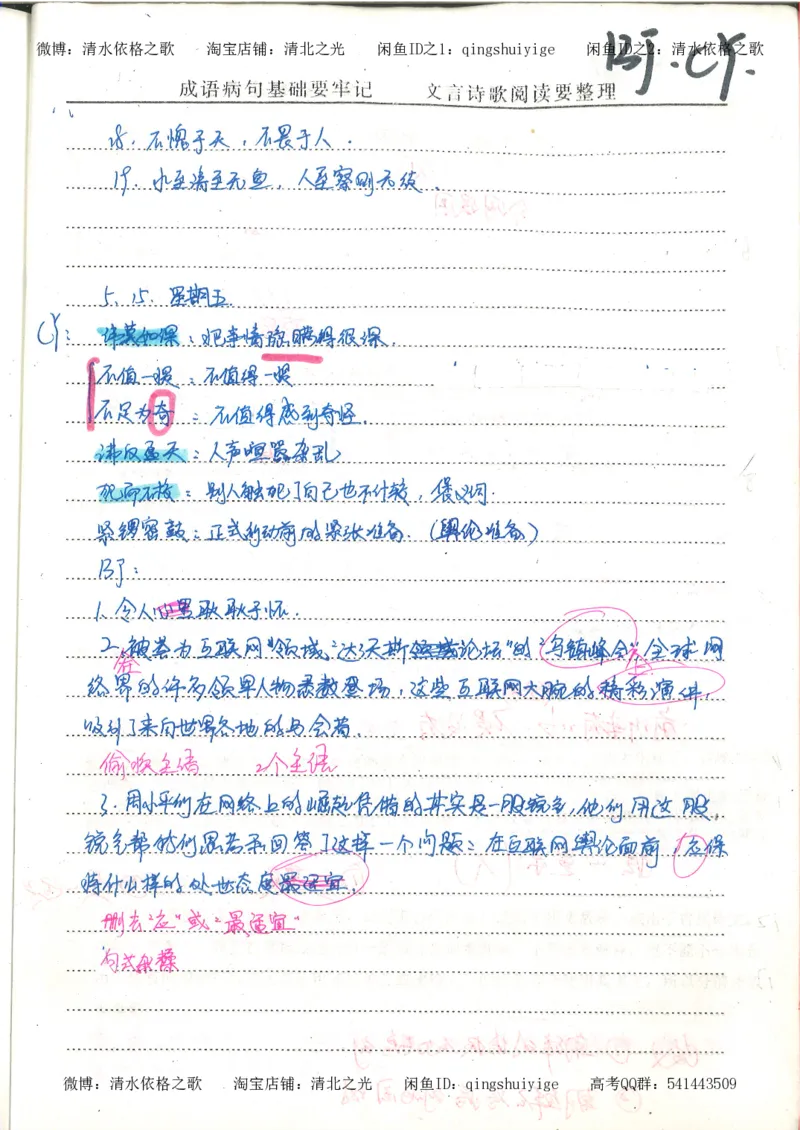 微博：清水依格之歌 淘宝店铺：清北之光 闲鱼ID之1：qingshuiyige 闲鱼ID之2：清水依格之歌
BJ.CY.
成语病句基础要牢记 文言诗歌阅读要整理
18. 不愧于天，不畏于人.
19. 水至清至无鱼，人至察则无徒.
5. 15. 星期五.
CY：讳莫如深：把事情隐瞒得很深.
不值一哂：不值得一哂
不足为奇：不值得感到奇怪.
沸反盈天：人声喧嚣杂乱
犯而不校：别人触犯了自己也不计较，褒义词.
紧锣密鼓：正式行动前的紧张准备.（舆论准备）
BJ：
1. 令人心里耿耿于怀.
2. 被尊为互联网“领域“达沃斯论坛”的“乌镇峰会”全球网
络界的许多领军人物悉数登场，这些互联网大腕的精彩演讲，
吸引了来自世界各地的与会者.
偷换主语 2个主语
3. 周小平们在网络上的崛起凭借的其实是一股锐气，他们用这股
锐气帮他们思考和回答了这样一个问题：在互联网舆论面前，应保
持什么样的处世态度最适宜.
删去“应”或“最适宜”
句式杂糅
微博：清水依格之歌 淘宝店铺：清北之光 闲鱼ID：qingshuiyige 高考QQ群：541443509